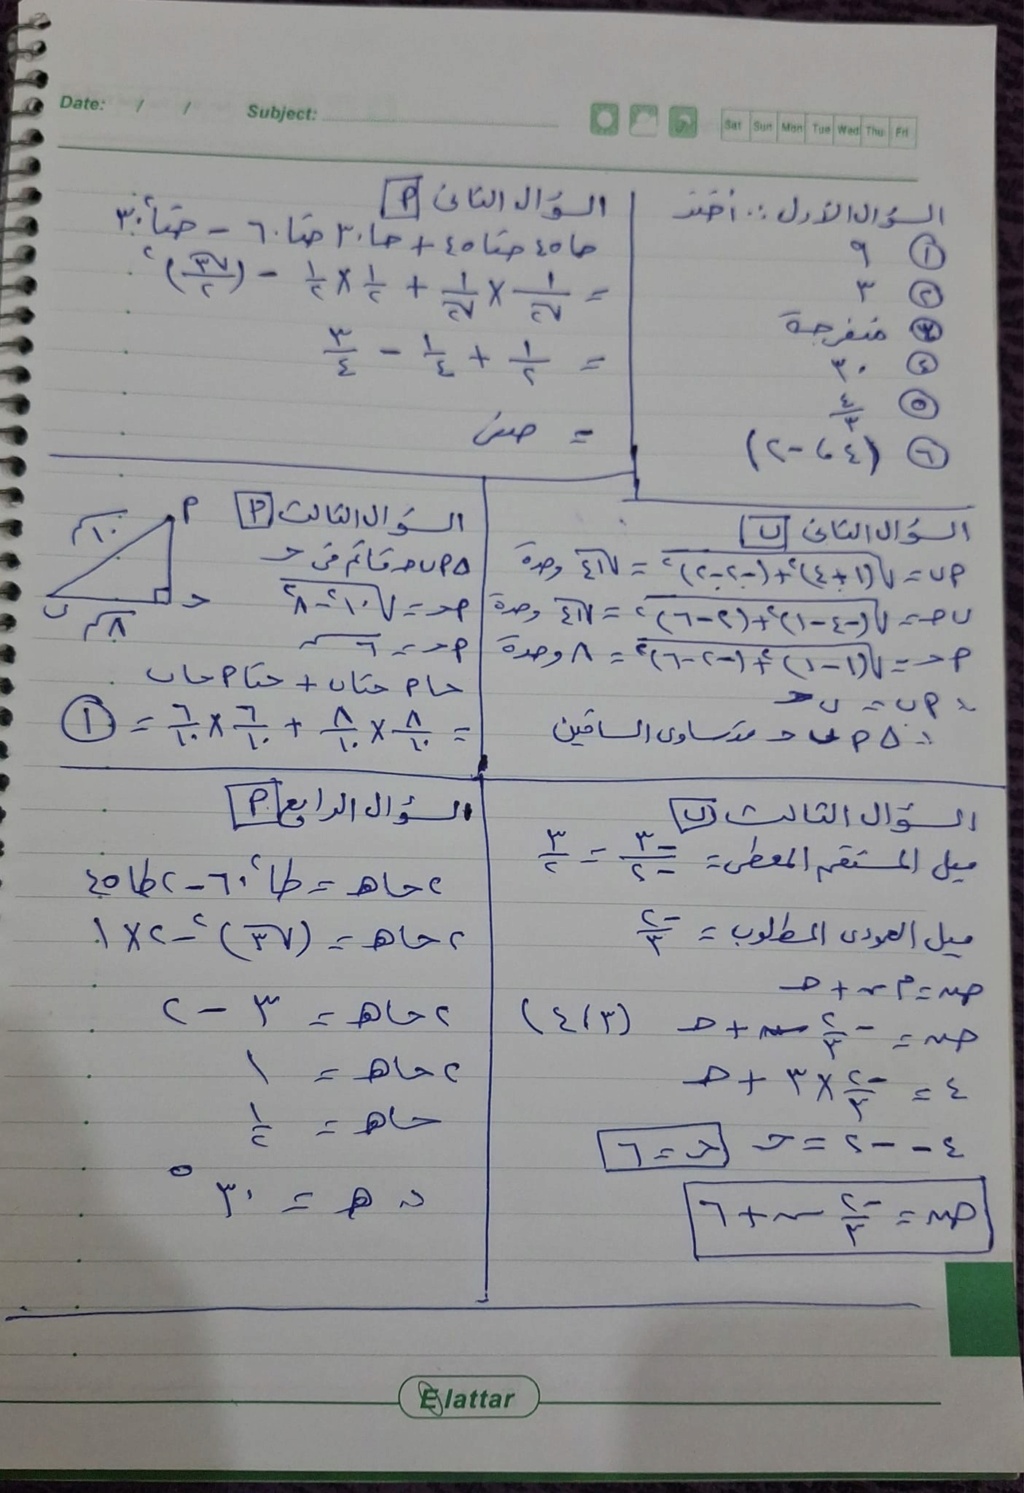 Date: / / Subject:
Sat Sun Mon Tue Wed Thu Fri
السؤال الأول :. أختر
① ٩
② ٣
③ منفرجة
④ ٣٠
⑤ ٤/٣
⑥ (٤ و -٢)
السؤال الثانى [P]
حا٤٥ حتا٤٥ + حا٣٠ حتا٦٠ - حتا²٣٠
= ١/√٢ × ١/√٢ + ١/٢ × ١/٢ - (√٣/٢)²
= ١/٢ + ١/٤ - ٣/٤
= صفر
السؤال الثانى [ب]
Pب = √(١+٤)²+(-٢-٢)² = √٤١ وحدة
بحـ = √(-٤-١)²+(٢-٦)² = √٤١ وحدة
Pحـ = √(١-١)²+(-٢-٦)² = ٨ وحدة
∴ Pب = بحـ
∴ Δ Pبحـ متساوى الساقين
السؤال الثالث [P]
ΔPبحـ قائم فى حـ
Pحـ = √١٠²-٨²
Pحـ = ٦سم
حاP حتاب + حتاP حاب
= ٨/١٠ × ٨/١٠ + ٦/١٠ × ٦/١٠ = ①
P
١٠سم
ب
حـ
٨سم
السؤال الثالث [ب]
ميل المستقيم المعطى = -٣/-٢ = ٣/٢
ميل العمودى المطلوب = -٢/٣
ص = م س + حـ
ص = -٢/٣ س + حـ (٣،٤)
٤ = -٢/٣ × ٣ + حـ
٤ - -٢ = حـ حـ = ٦
ص = -٢/٣ س + ٦
السؤال الرابع [P]
٢حاهـ = طا²٦٠ - ٢طا٤٥
٢حاهـ = (√٣)² - ٢×١
٢حاهـ = ٣ - ٢
٢حاهـ = ١
حاهـ = ١/٢
∴ هـ = ٣٠°
Elattar